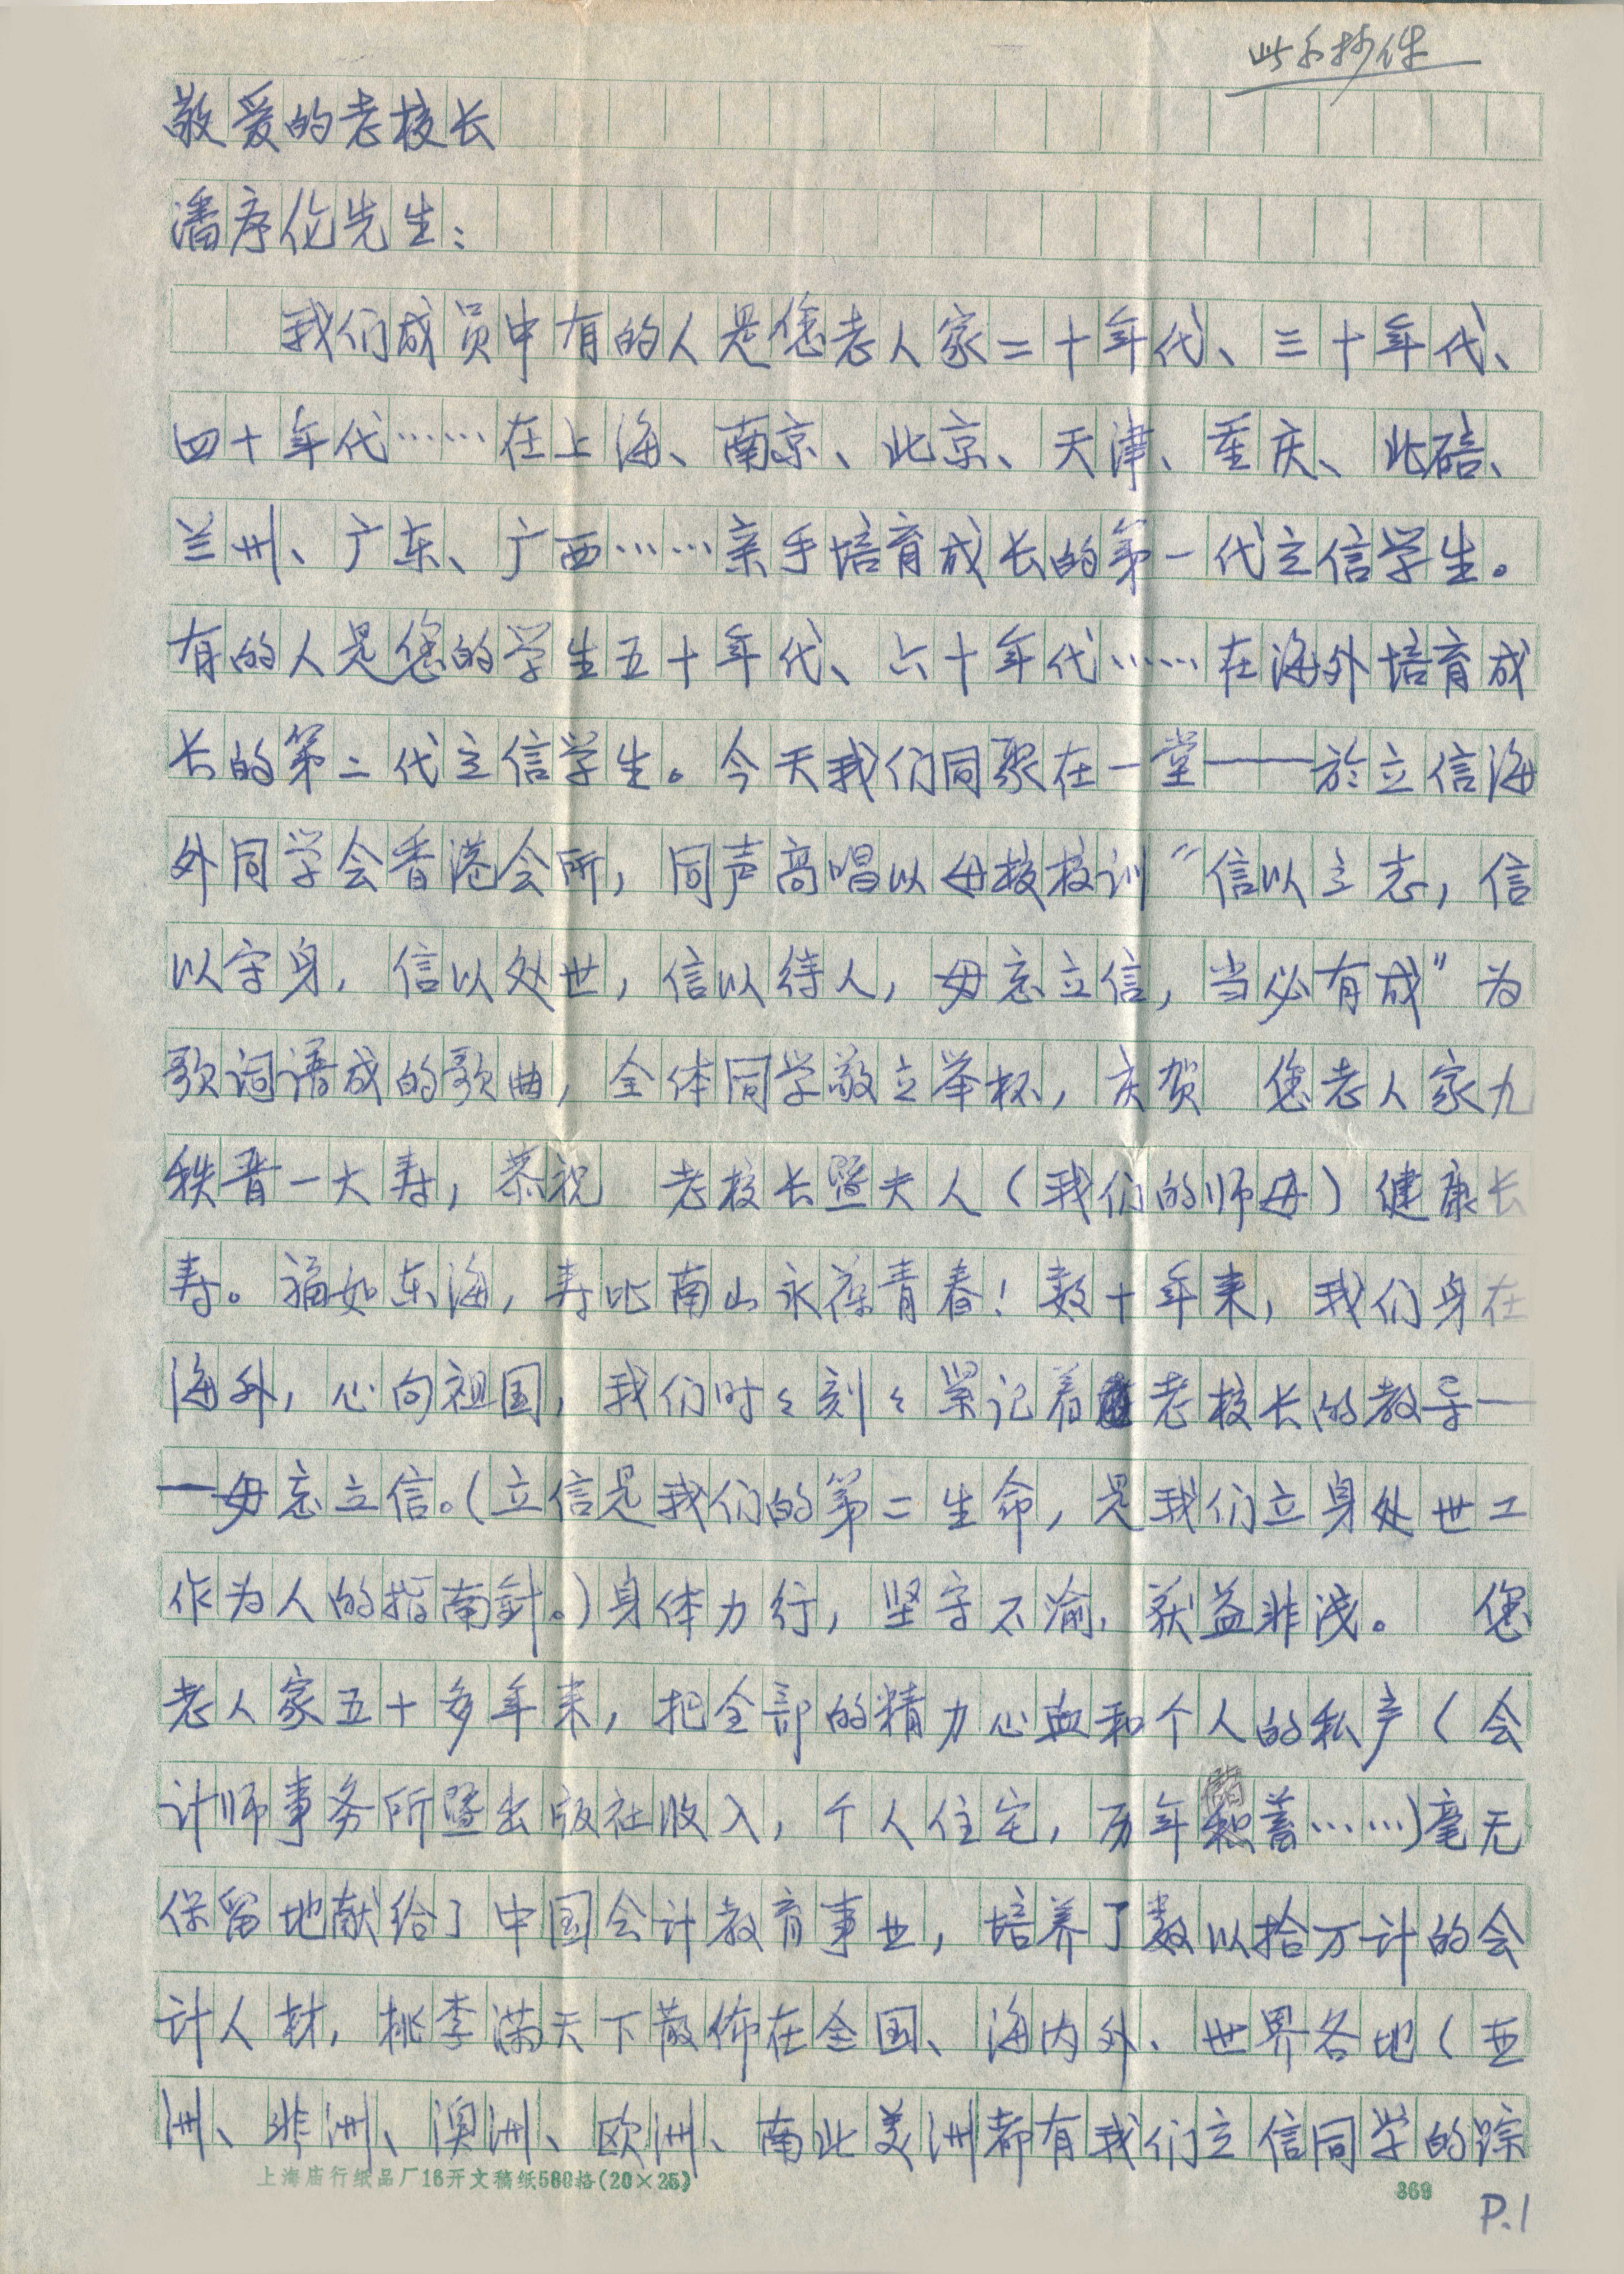 此系抄件
敬爱的老校长
潘序伦先生：
我们成员中有的人是您老人家二十年代、三十年代、
四十年代……在上海、南京、北京、天津、重庆、北碚、
兰州、广东、广西……亲手培育成长的第一代立信学生。
有的人是您的学生五十年代、六十年代……在海外培育成
长的第二代立信学生。今天我们同聚在一堂——於立信海
外同学会香港会所，同声高唱以母校校训“信以立志，信
以守身，信以处世，信以待人，毋忘立信，当必有成”为
歌词谱成的歌曲，全体同学敬立举杯，庆贺 您老人家九
秩晋一大寿，恭祝 老校长暨夫人（我们的师母）健康长
寿。福如东海，寿比南山永葆青春！数十年来，我们身在
海外，心向祖国，我们时々刻々紧记着老校长的教导—
—毋忘立信。（立信是我们的第二生命，是我们立身处世工
作为人的指南针。）身体力行，坚守不渝，获益非浅。 您
老人家五十多年来，把全部的精力心血和个人的私产（会
计师事务所暨出版社收入，个人住宅，历年积蓄……）毫无
保留地献给了中国会计教育事业，培养了数以拾万计的会
计人材，桃李满天下散佈在全国、海内外、世界各地（亚
洲、非洲、澳洲、欧洲、南北美洲都有我们立信同学的踪
上海庙行纸品厂16开文稿纸500格(20×25)
369
P.1